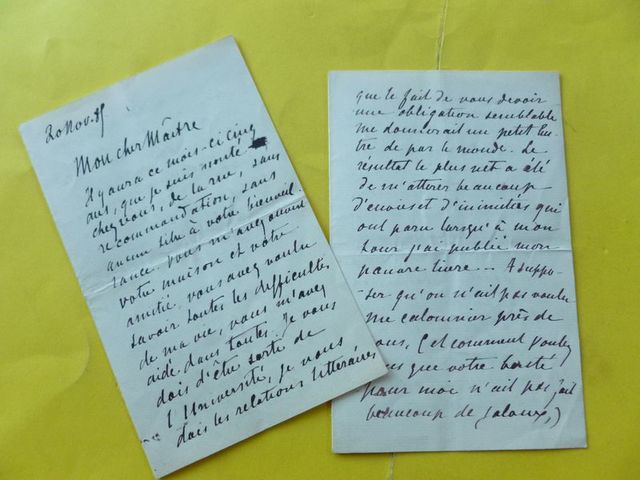 20 Nov. 85
Mon cher Maître
Il y aura ce mois-ci cinq
ans, que je suis monté
chez vous, de la rue, sans
recommandation, sans
aucun titre à votre bienveil
lance. Vous m'avez ouvert
votre maison et votre
amitié. Vous avez voulu
savoir toutes les difficultés
de ma vie, vous m'avez
aidé dans toutes. Je vous
dois d'être sorti de
l'Université, je vous
dois les relations littéraires
que le fait de vous devoir
une obligation semblable
me donnerait un petit ti
tre de par le monde. Le
résultat le plus net a été
de m'attirer beaucoup
d'envies et d'inimitiés qui
ont paru lorsqu'à mon
tour j'ai publié mon
pauvre livre... A suppo-
ser qu'on n'ait pas voulu
me calomnier près de
vous, (et comment voulez
vous que votre bonté
pour moi n'ait pas fait
beaucoup de jaloux,)